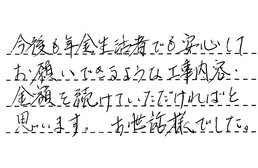 今後も年金生活者でも安心して
お願いできるような工事内容・
金額を続けていただければと
思います。 お世話様でした。